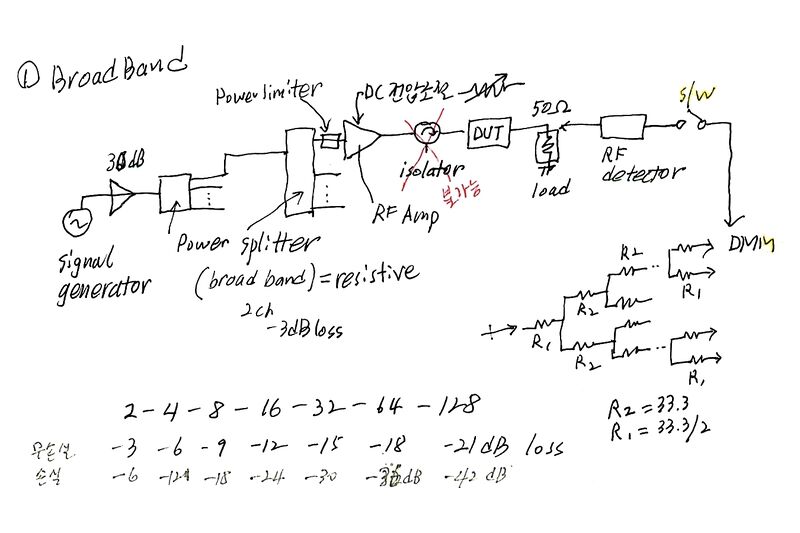 ① BroadBand
Power limiter
DC 전압조절
S/W
50Ω
30dB
DUT
isolator
불가능
RF Amp
load
RF
detector
signal
generator
Power splitter
(broad band) = resistive
2ch
-3dB loss
DMM
R2
R1
R1
R2
R2
R1
R2 = 33.3
R1 = 33.3/2
2 - 4 - 8 - 16 - 32 - 64 - 128
무손실 -3 -6 -9 -12 -15 -18 -21 dB loss
손실 -6 -12 -18 -24 -30 -36 dB -42 dB